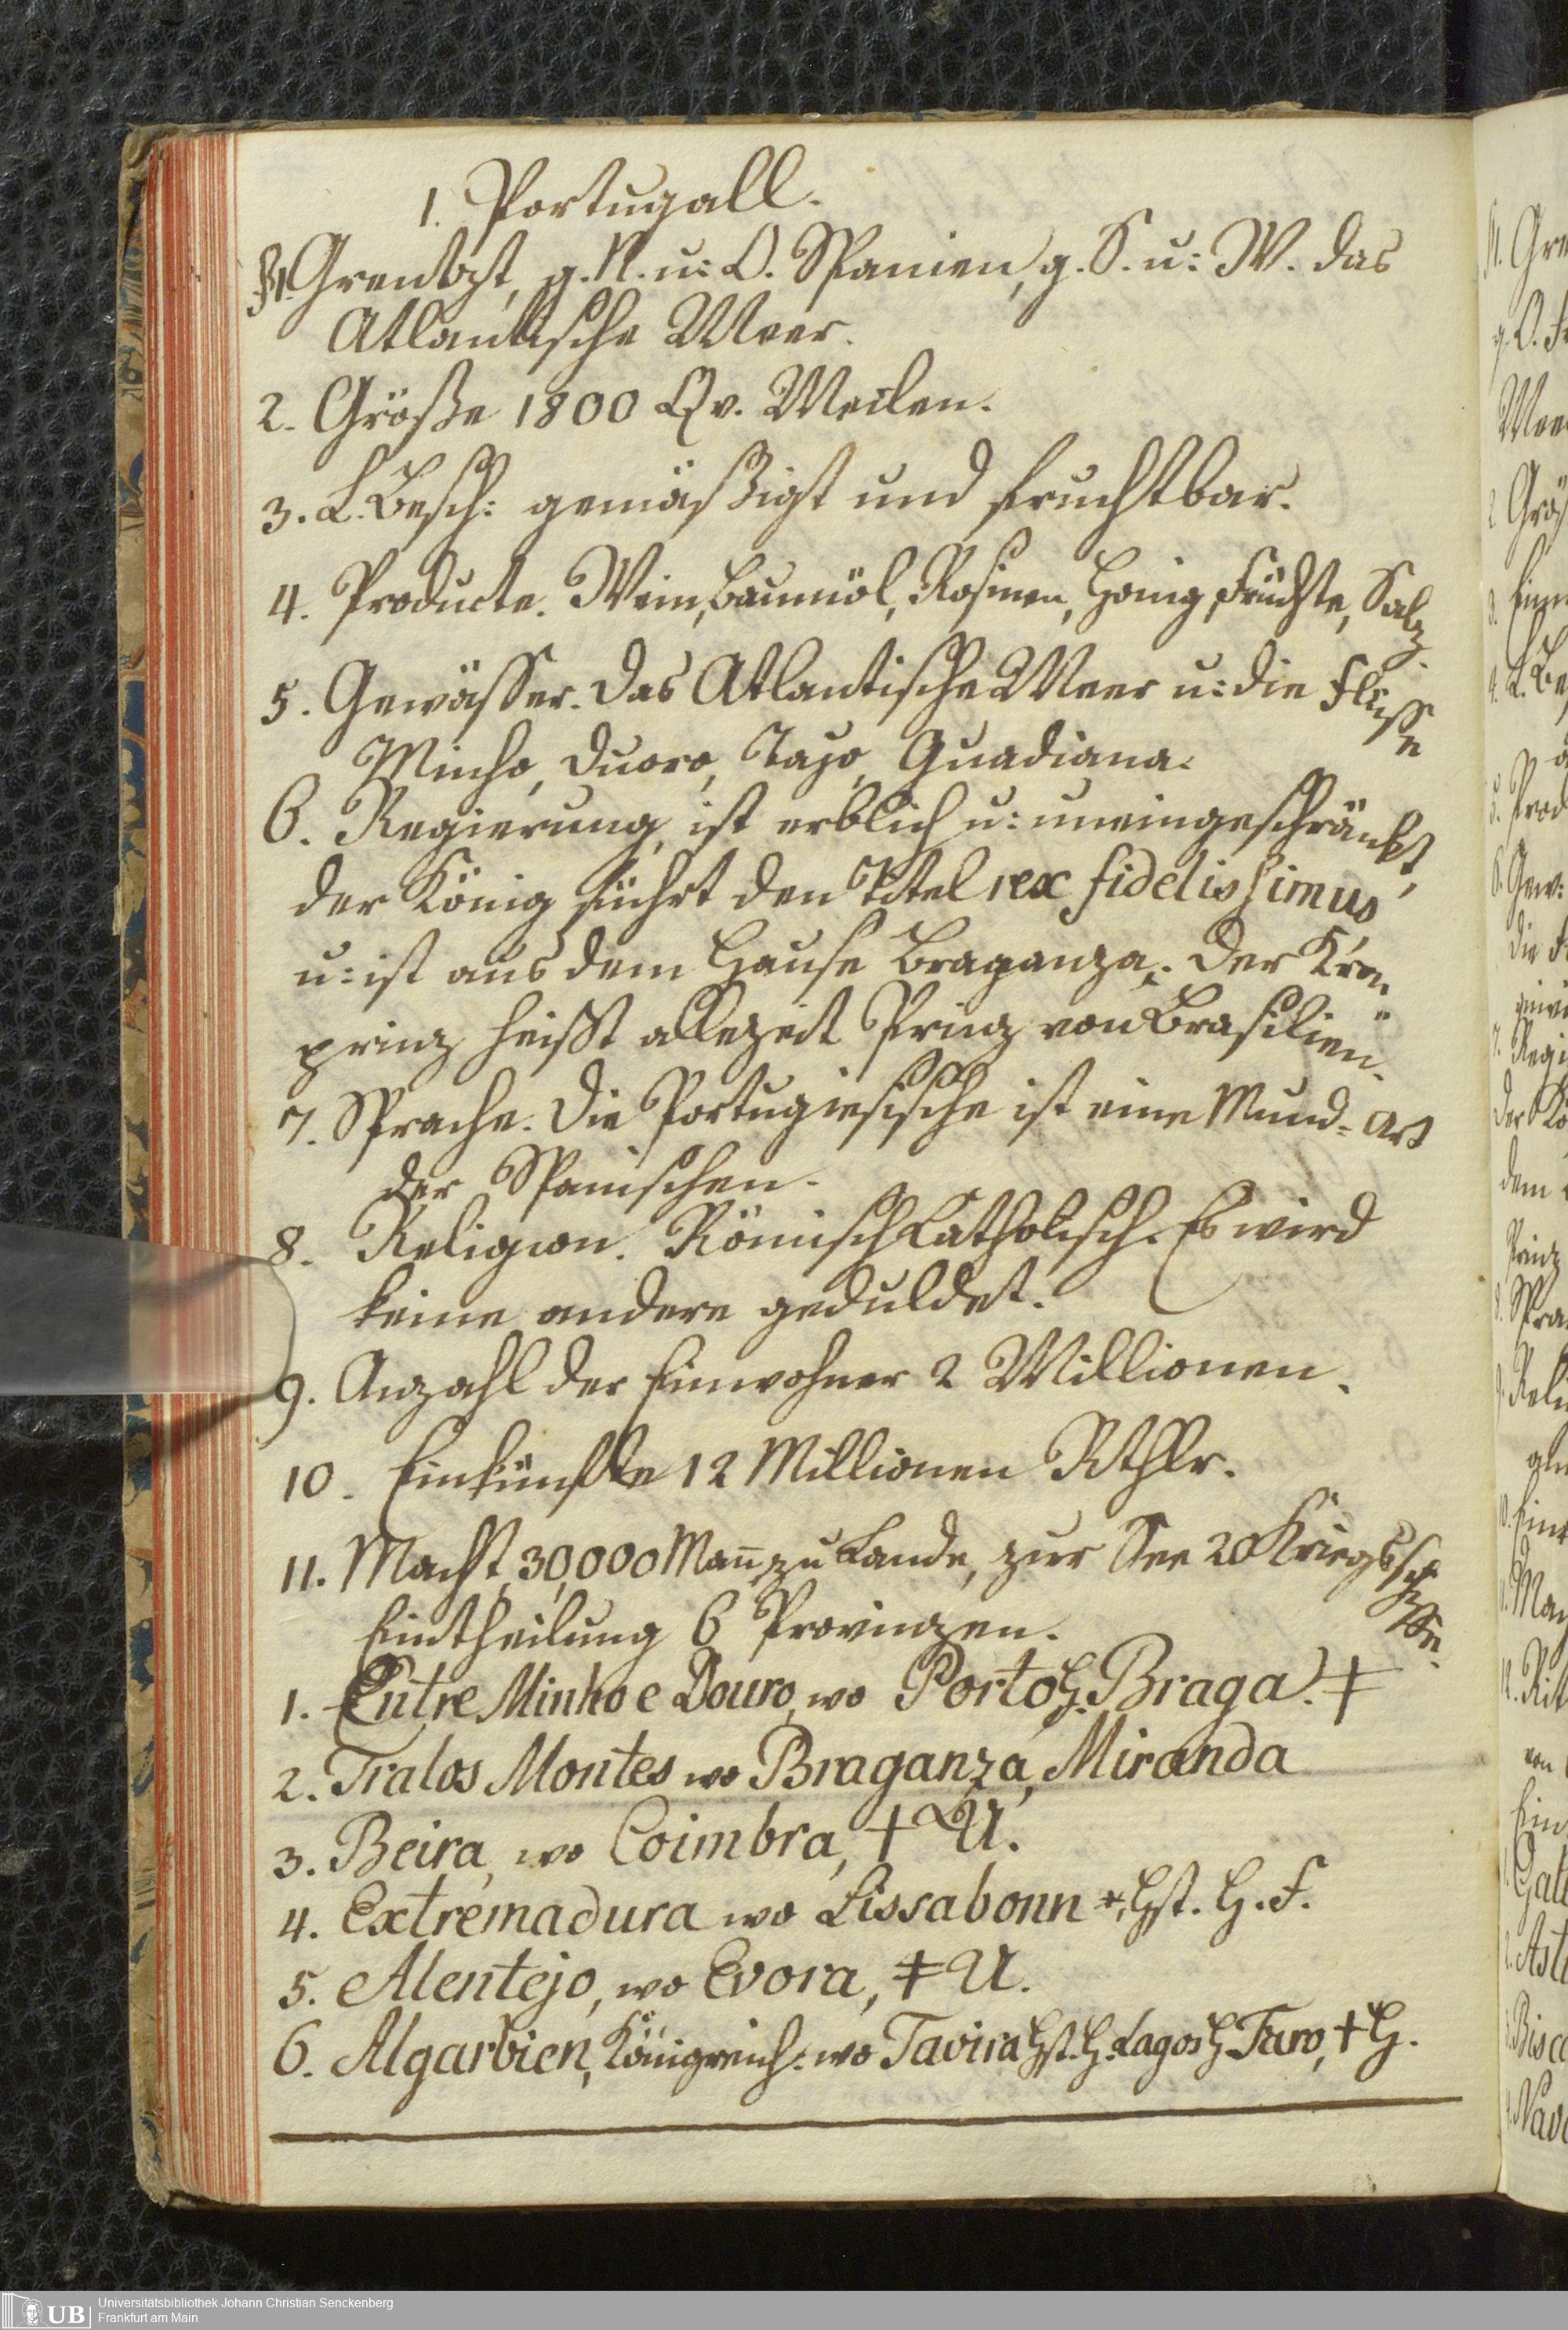 1. Portugall.
1. Grentzt, g. N. u: O. Spanien, g. S. u: W. das
Atlantische Meer.
2. Größe 1800 Qv. Meilen.
3. L. Besch: gemäßigt und fruchtbar.
4. Producte. Wein, Baumöl, Rosinen, Honig, Früchte, Salz.
5. Gewässer. Das Atlantische Meer u: die Flüsse
Minho, Duoro, Tajo, Guadiana.
6. Regierung, ist erblich u: uneingeschränkt,
der König führt den Titel rex fidelissimus
u: ist aus dem Hause Braganza. Der Kron
prinz heißt allezeit Prinz von Brasilien.
7. Sprache. Die Portugiesische ist eine Mund-Art
der Spanischen.
8. Religion. Römisch Catholisch. Es wird
keine andere geduldet.
9. Anzahl der Einwohner 2 Millionen.
10. Einkünfte 12 Millionen Rthlr.
11. Macht, 30,000 Mañ zu Lande, zur See 20 Kriegsschiffe.
Eintheilung 6 Provinzen.
1. Entre Minho e Douro, wo Porto H. Braga. ‡
2. Tralos Montes wo Braganza, Miranda
3. Beira, wo Coimbra, † U.
4. Extremadura wo Lissabonn *, Hst. H. F.
5. Alentejo, wo Evora, ‡ U.
6. Algarbien, Königreich: wo Tavira Hst. H. Lagos H Faro, † H.
UB
Universitätsbibliothek Johann Christian Senckenberg
Frankfurt am Main